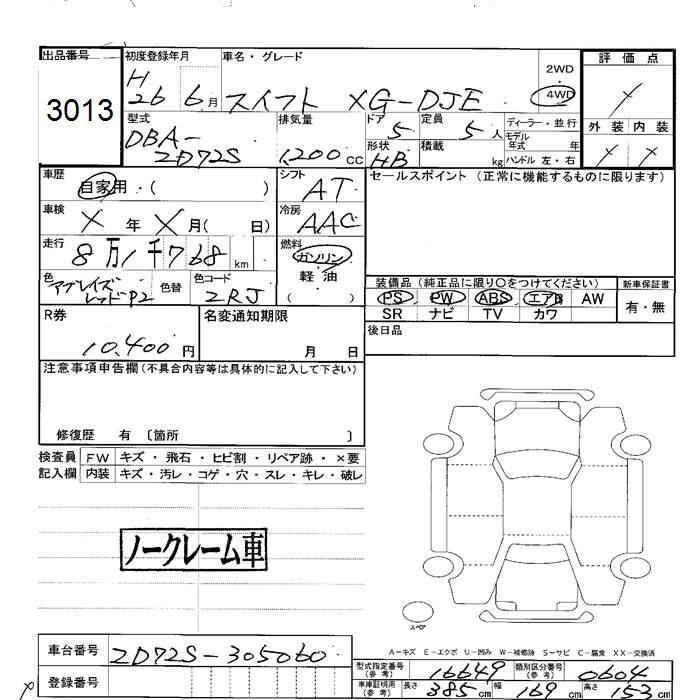 出品番号 初度登録年月 車名・グレード 評価点
3013 H 26 6月 スイフト XG-DJE 2WD・4WD
型式 排気量 ドア 定員 ディーラー・並行 外装 内装
DBA-ZD72S 1,200cc 5 5人 モデル年式 年
形状 HB 積載 kg ハンドル 左・右
車歴 シフト セールスポイント (正常に機能するものに限ります)
自家用・( ) AT
車検 冷房
× 年 × 月( 日) AAC
走行 燃料
8万1千768km ガソリン・軽油・( )
色 色替 色コード 装備品(純正品に限り○をつけてください) 新車保証書
アブレイズレッドP2 ZRJ PS PW ABS エアB AW 有・無
SR ナビ TV カワ
R券 名変通知期限 後日品
10,400円 月 日
注意事項申告欄 (不具合内容等は具体的に記入して下さい)
修復歴 有 〔箇所 〕
検査員 FW キズ・飛石・ヒビ割・リペア跡・×要
記入欄 内装 キズ・汚レ・コゲ・穴・スレ・キレ・破レ
ノークレーム車
スペア
A-キズ E-エクボ U-凹み W-補修跡 S-サビ C-腐食 XX-交換済
車台番号 ZD72S-305060 型式指定番号(参考) 16649 類別区分番号(参考) 0604
登録番号 車庫証明用(参考) 長さ 385cm 幅 169cm 高さ 153cm